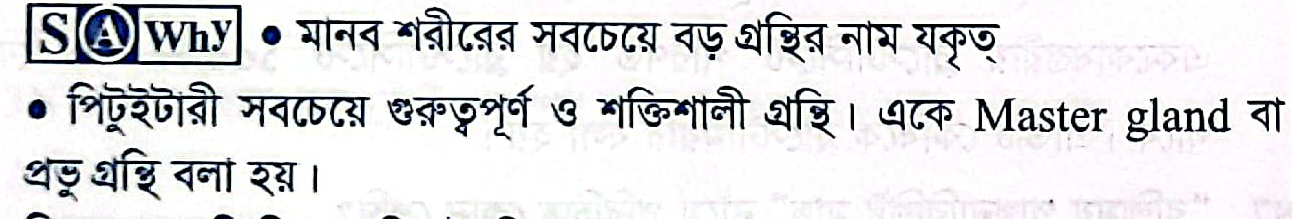 SAWhy • মানব শরীরের সবচেয়ে বড় গ্রন্থির নাম যকৃত্
• পিটুইটারী সবচেয়ে গুরুত্বপূর্ণ ও শক্তিশালী গ্রন্থি। একে Master gland বা
প্রভু গ্রন্থি বলা হয়।